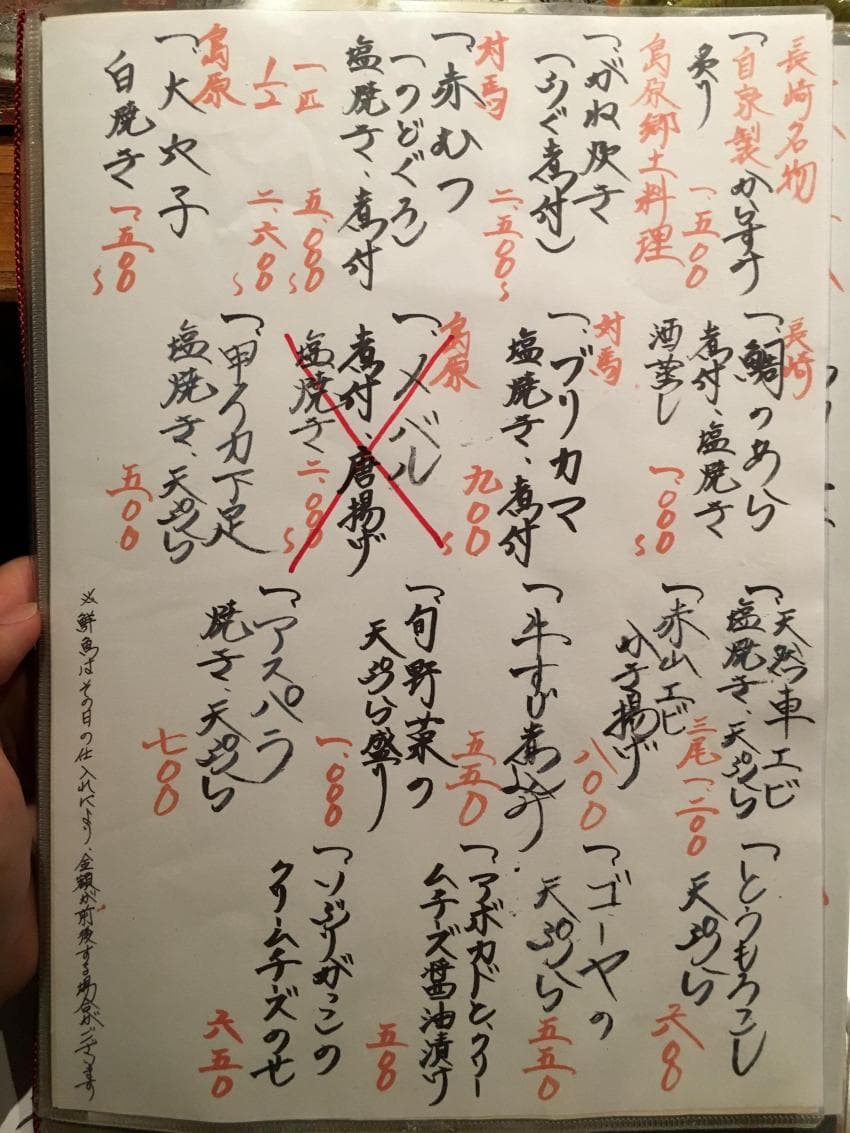 長崎名物
一、自家製からすみ
炙り
一、五〇〇
島原郷土料理
一、がね炊き
(ふぐ煮付)
二、五〇〇〜
対馬
一、赤むつ
(のどぐろ)
塩焼き、煮付
一匹 五、〇〇〇〜
1/2 二、六〇〇〜
島原
一、大穴子
白焼き
一、五〇〇〜
長崎
一、鯛のあら
煮付、塩焼き
酒蒸し
一、〇〇〇〜
対馬
一、ブリカマ
塩焼き、煮付
九〇〇〜
島原
一、メバル
煮付、唐揚げ
塩焼き 二、〇〇〇〜
一、甲イカ下足
塩焼き、天ぷら
五〇〇
一、天然車エビ
塩焼き、天ぷら
三尾一、二〇〇
一、赤山エビ
かき揚げ
八〇〇
一、牛すじ煮込み
五五〇
一、旬野菜の
天ぷら盛り
一、〇〇〇
一、アスパラ
焼き、天ぷら
七〇〇
一、とうもろこし
天ぷら
六〇〇
一、ゴーヤの
天ぷら
五五〇
一、アボカドと、クリー
ムチーズ醤油漬け
五五〇
一、いぶりがっこの
クリームチーズのせ
六五〇
※鮮魚はその日の仕入れにより、金額が前後する場合がございます